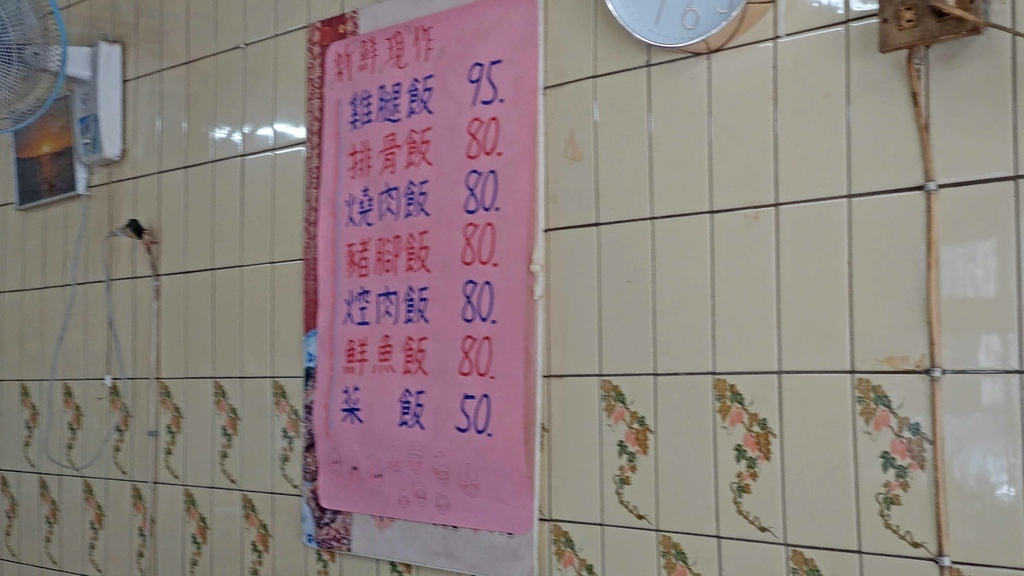 新鮮現作
雞腿飯 95.
排骨飯 80.
燒肉飯 80.
豬腳飯 80.
焢肉飯 80.
鮮魚飯 80.
菜 飯 50.
6